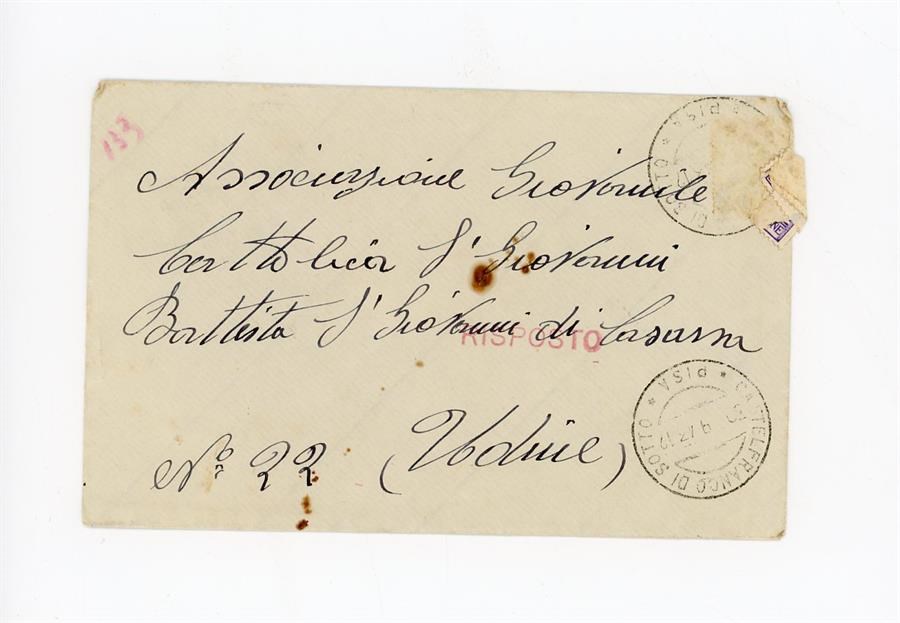 133
PISA
DI SOTTO
Associazione Giovanile
Cattolica S' Giovanni
Battista S' Giovanni di Casarsa
RISPOSTO
* PISA * CASTELFRANCO DI SOTTO
No 22 (Udine)